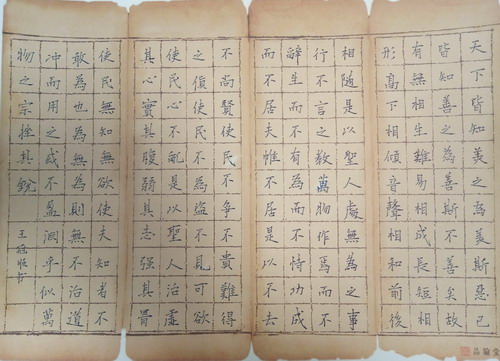 天下皆知美之為美斯惡已
皆知善之為善斯不善矣故
有無相生難易相成長短相
形高下相傾音聲相和前後
相隨是以聖人處無為之事
行不言之教萬物作焉而不
辭生而不有為而不恃功成
而不居夫帷不居是以不去
不尚賢使民不爭不貴難得
之貨使民不為盜不見可欲
使民心不亂是以聖人治虛
其心實其腹弱其志强其骨
使民無知無欲使夫知者不
敢為也為無為則無不治道
冲而用之或不盈淵乎似萬
物之宗挫其銳